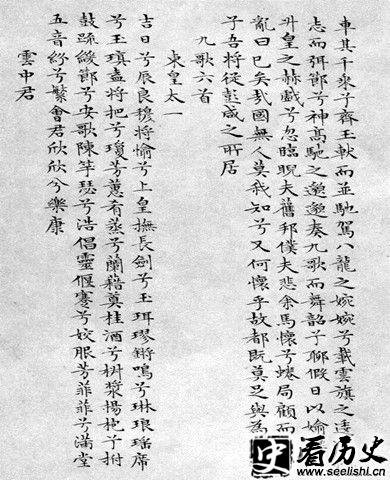 車其千乘兮齊玉軑而並馳駕八龍之婉婉兮載雲旗之逶
志而弭節兮神高馳之邈邈奏九歌而舞韶兮聊假日以媮
升皇之赫戲兮忽臨睨夫舊邦僕夫悲余馬懷兮蜷局顧而
亂曰已矣哉國無人莫我知兮又何懷乎故都既莫足與為
兮吾將從彭咸之所居
九歌六首
東皇太一
吉日兮辰良穆將愉兮上皇撫長劍兮玉珥璆鏘鳴兮琳琅瑤席
兮玉瑱盍將把兮瓊芳蕙肴蒸兮蘭藉奠桂酒兮椒漿揚枹兮拊
鼓疏緩節兮安歌陳竽瑟兮浩倡靈偃蹇兮姣服芳菲菲兮滿堂
五音紛兮繁會君欣欣兮樂康
雲中君
史看历史
www.seelishi.cn